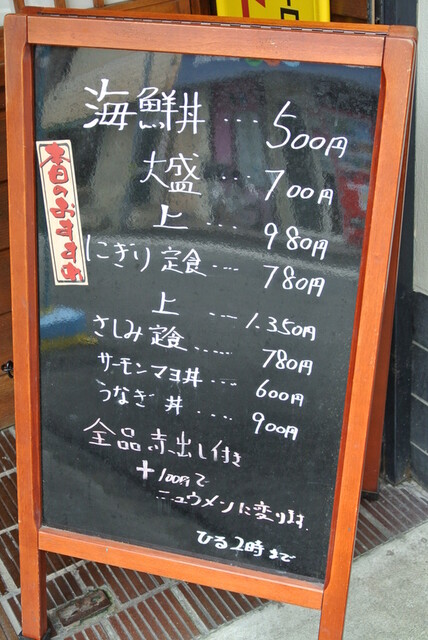 海鮮丼 ... 500円
大盛 ... 700円
上 ... 980円
にぎり定食 .... 780円
上 ... 1.350円
さしみ定食 ..... 780円
サーモンマヨ丼 .... 600円
うなぎ丼 .... 900円
全品赤出し付き
+100円で
ニュウメンに変ります.
ひる2時まで
本日のおすすめ